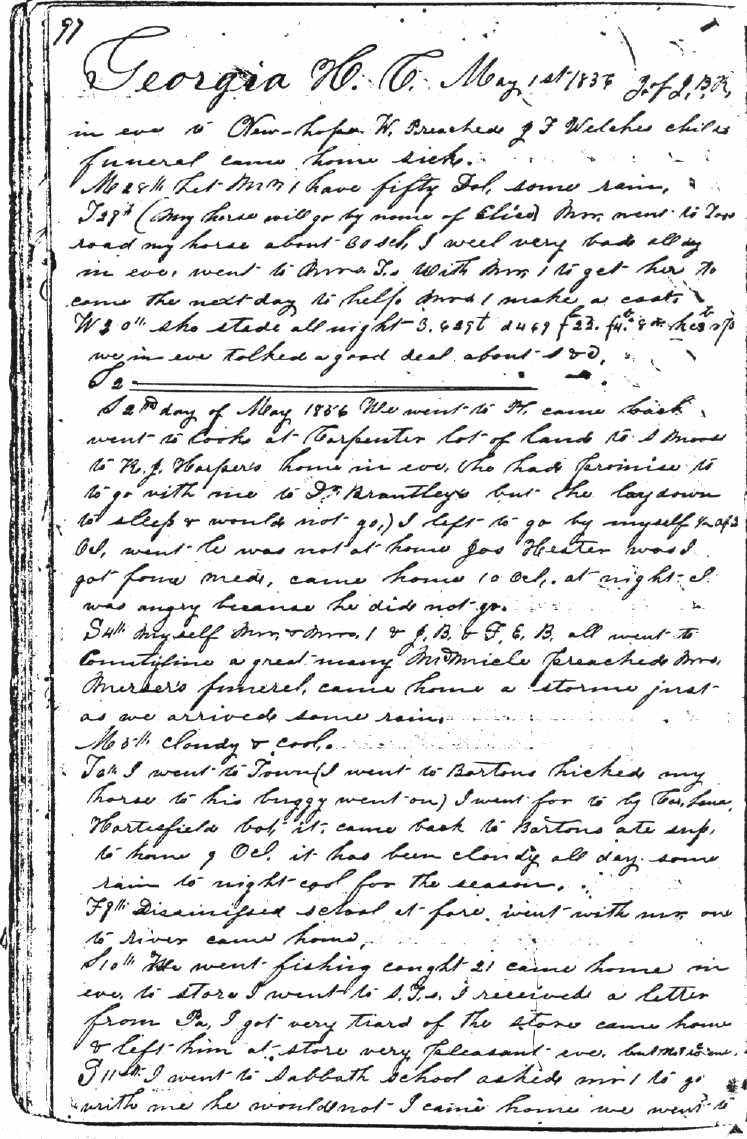 97
Georgia H. C. May 1st 1856 J. of J. B. H,
in eve to New-hope W. Preached J F Welches childs
funeral came home sick.
M 28th Let Mr 1 have fifty Dol, some rain,
T 29th (My horse will go by name of Eliza) Mr, went to Town
road my horse about 30 Scl, I weel very bad all dy
in eve, went to Mrs T.s With Mr, 1 to get her to
come the next day to help Mrs 1 make a coat,
W 30th she stade all night
we in eve talked a good deal about S & D,
S 2
S 2nd day of May 1856 We went to H. came back
went to look at Carpenter lot of land to S Moore
to H. J. Harpers home in eve, (he had promise to
to go with me to Dr Brantleys but he lay down
to sleep & would not go,) I left to go by myself
Ocl, went he was not at home Jos Hester was I
got some med, came home 10 Ocl,. at night I
was angry because he did not go.
S 4th Myself Mr, & Mrs, 1 & J, B. & F, E, B, all went to
Countyline a great many Mr McMicle preached Mrs,
Merser's funeral, came home a storme just
as we arrived some rain,
M 5th cloudy & cool,
T 6th I went to Town (I went to Bartons hicked my
horse to his buggy went on) I went for to by
Hartsfield bot, it, came back to Bartons ate sup,
to home 9 Ocl, it has been cloudy all day some
rain to night cool for the season,
F 9th Dissmissed school at fore, went with mr, one
to river came home,
S 10th We went fishing caught 21 came home in
eve, to store I went to S. T.s, I received a letter
from Pa, I got very tiard of the store came home
& left him at store very pleasant eve,
S 11th I went to Sabbath school asked mr 1 to go
with me he would not I came home we went to